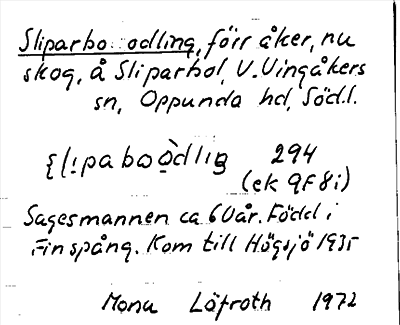 Sliparbo=odling, förr åker, nu
skog, å Sliparbol, V. Vingåkers
sn, Oppunda hd, Södl.
294
(ek 9F8i)
Sagesmannen ca 60 år. Född i
Finspång. Kom till Högsjö 1935
Mona Löfroth 1972